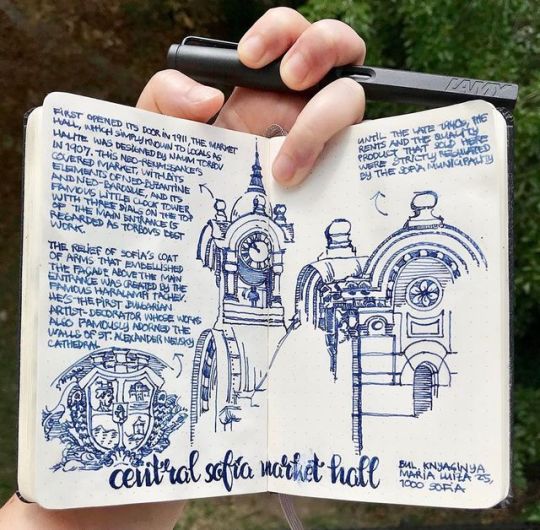 LAMY
FIRST OPENED ITS DOOR IN 1911, THE MARKET
HALL, WHICH SIMPLY KNOWN TO LOCALS AS
HALITE WAS DESIGNED BY NAUM TORBOV
IN 1907. THIS NEO-RENAISSANCE'S
COVERED MARKET, WITH ITS
ELEMENTS OF NEO-BYZANTINE
AND NEO-BAROQUE, AND ITS
FAMOUS LITTLE CLOCK TOWER
WITH THREE DIALS ON THE TOP
OF THE MAIN ENTRANCE IS
REGARDED AS TORBOV'S BEST
WORK.
THE RELIEF OF SOFIA'S COAT
OF ARMS THAT EMBELLISHED
THE FAÇADE ABOVE THE MAIN
ENTRANCE WAS CREATED BY THE
FAMOUS HARALAMPI TACHEV.
HE'S THE FIRST BULGARIAN
ARTIST-DECORATOR WHOSE WORKS
ALSO FAMOUSLY ADORNED THE
WALLS OF ST. ALEXANDER NEVSKY
CATHEDRAL
UNTIL THE LATE 1940s, THE
RENTS AND THE QUALITY
PRODUCT THAT SOLD HERE
WERE STRICTLY REGULATED
BY THE SOFIA MUNICIPALITY
central sofia market hall
BUL. KNYAGINYA
MARIA LUIZA 25,
1000 SOFIA